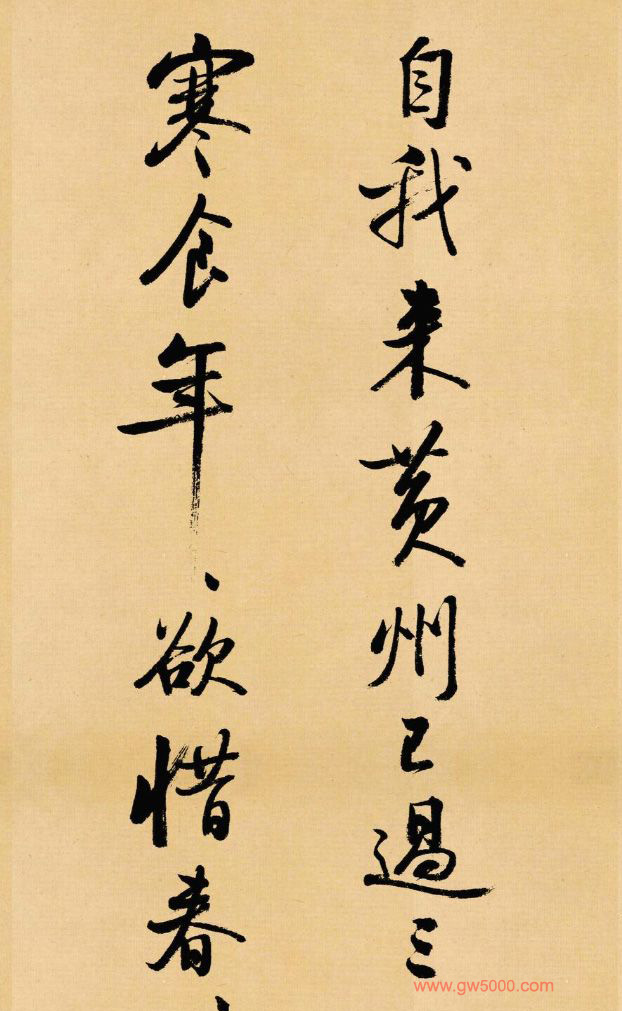 自我来黄州已過三
寒食年〻欲惜春
www.gw5000.com